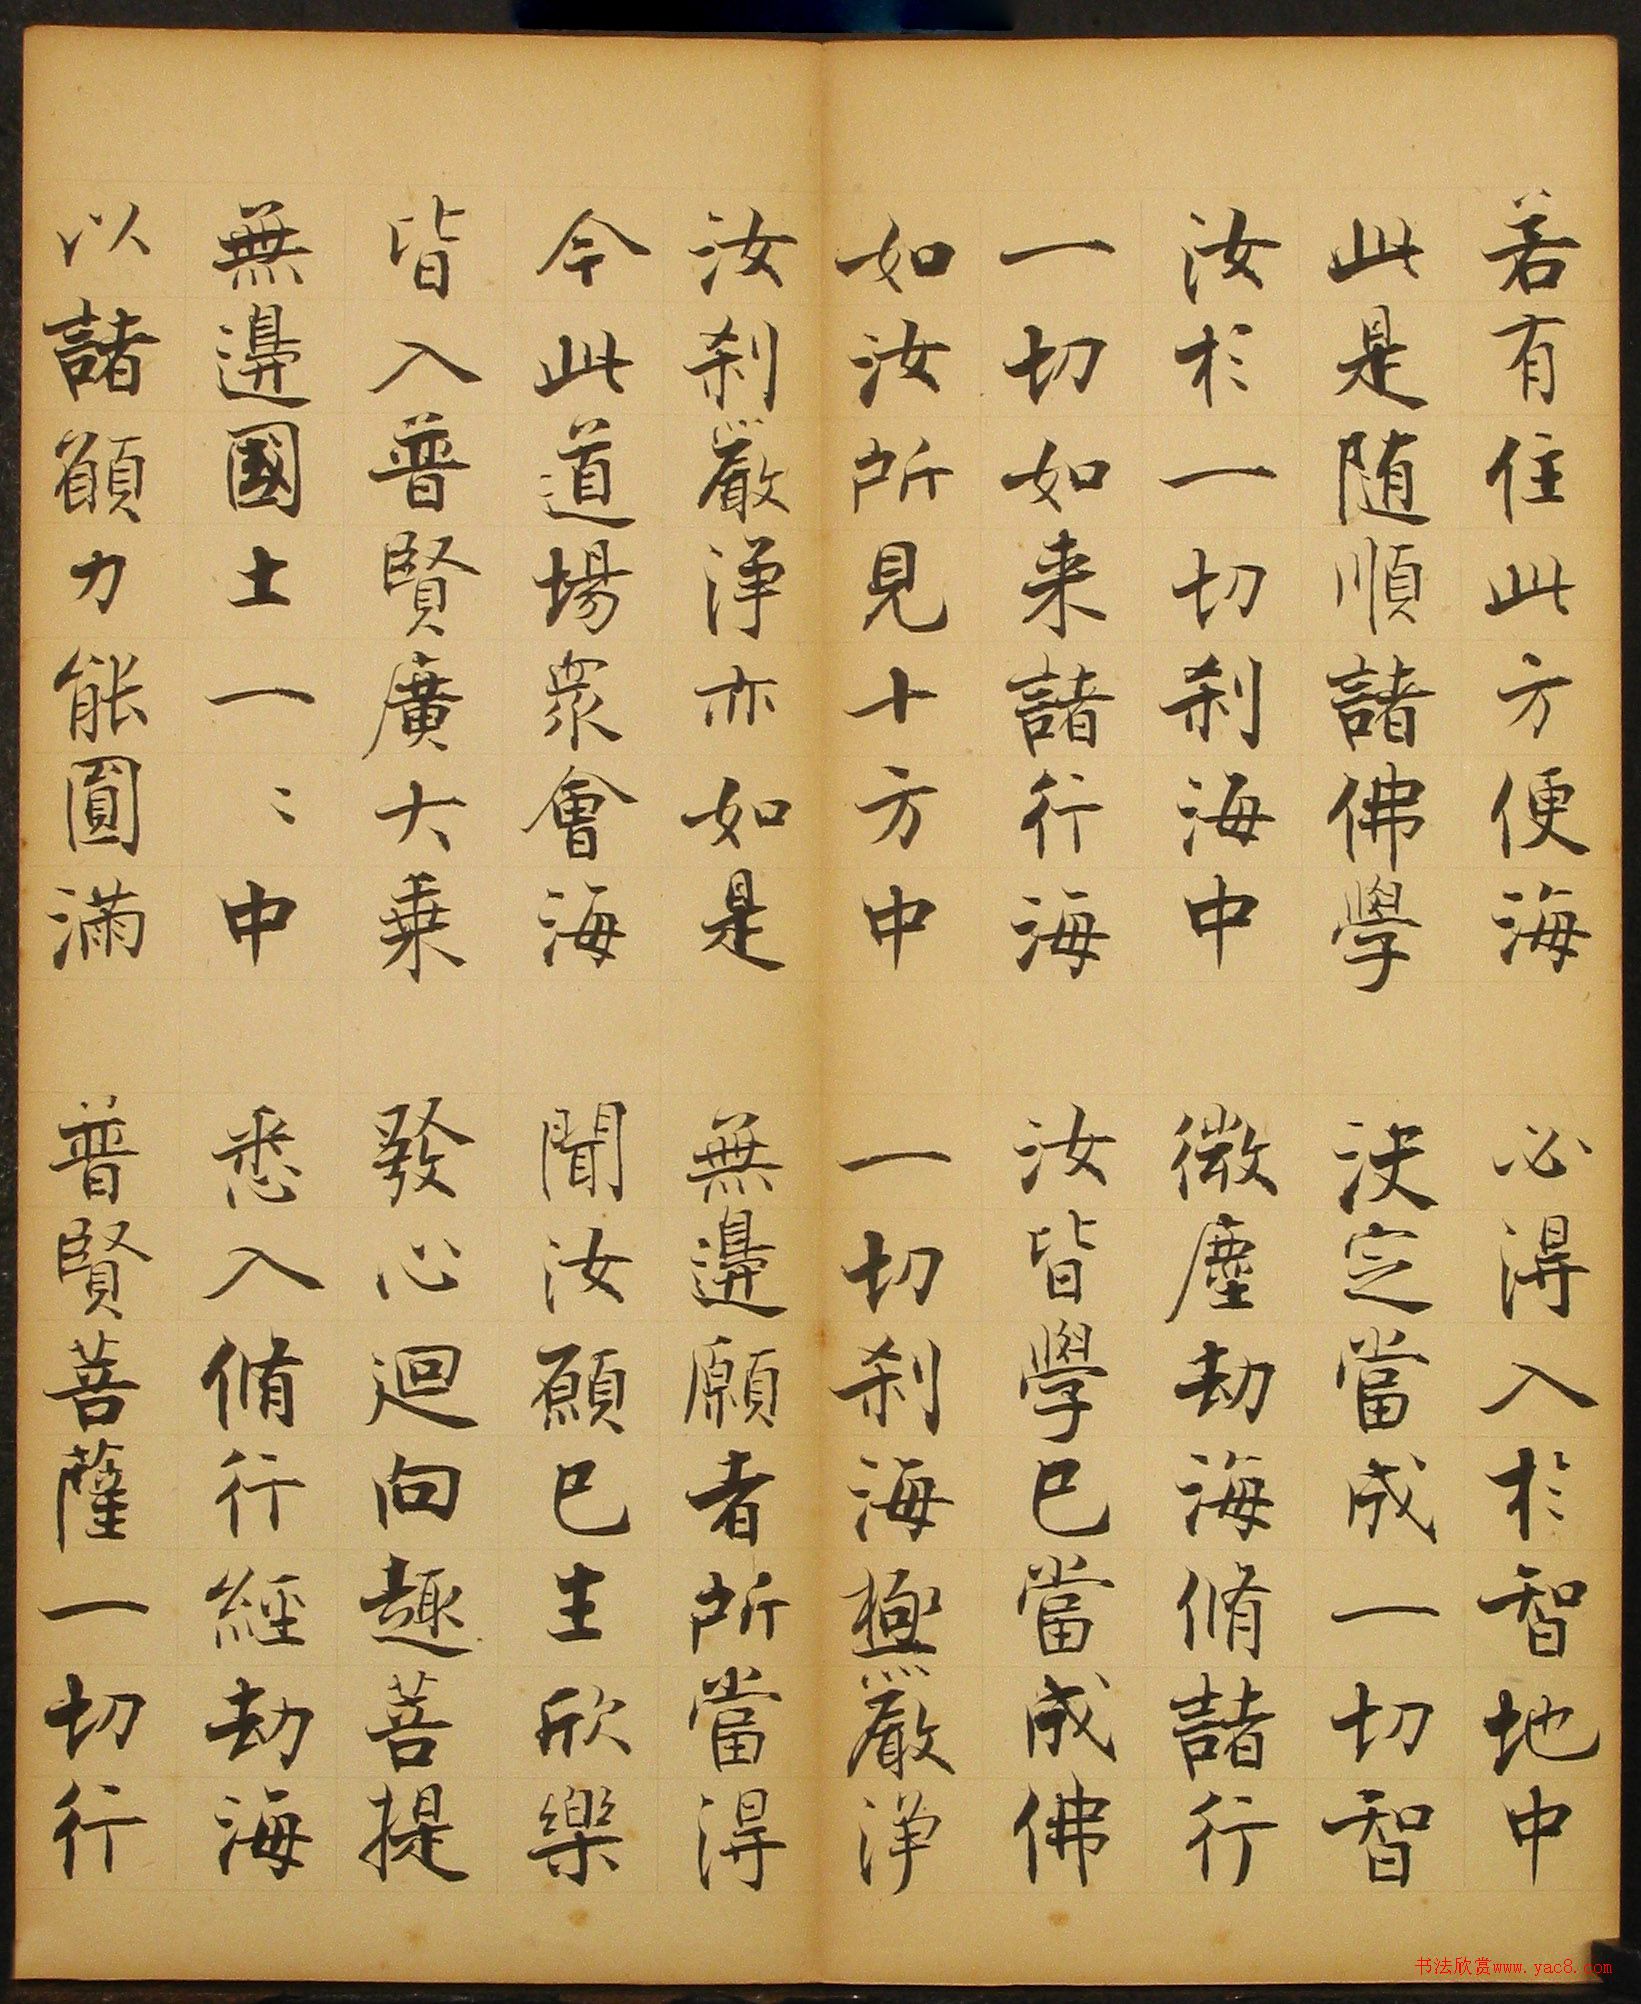 若有住此方便海　必得入於智地中
此是随順諸佛學　決定當成一切智
汝於一切刹海中　微塵劫海脩諸行
一切如来諸行海　汝皆學已當成佛
如汝所見十方中　一切刹海極嚴淨
汝刹嚴淨亦如是　無邊願者所當得
今此道場衆會海　聞汝願已生欣樂
皆入普賢廣大乗　發心迴向趣菩提
無邊國土一〻中　悉入脩行經劫海
以諸願力能圓滿　普賢菩薩一切行
书法欣赏www.yac8.com